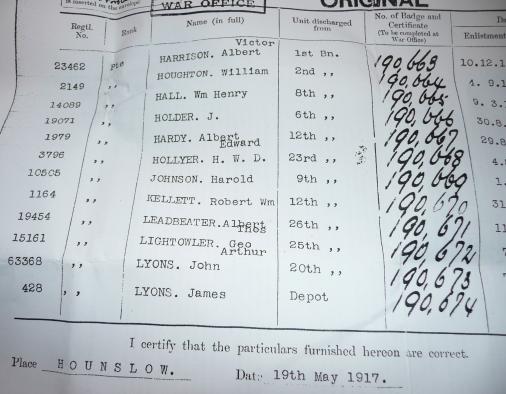 is inserted on the envelope
WAR OFFICE
ORIGINAL
Regtl. No. Rank Name (in full) Unit discharged from No. of Badge and Certificate (To be completed at War Office) Enlistment
23462 pte HARRISON. Albert Victor 1st Bn. 190,663 10.12.1
2149 ,, HOUGHTON. William 2nd ,, 190,664 4. 9.1
14089 ,, HALL. Wm Henry 8th ,, 190,665 9. 3.
19071 ,, HOLDER. J. 6th ,, 190,666 30.8.
1979 ,, HARDY. Albert Edward 12th ,, 190,667 29.8
3796 ,, HOLLYER. H. W. D. 23rd ,, 190,668 4.
10505 ,, JOHNSON. Harold 9th ,, 190,669 1.
1164 ,, KELLETT. Robert Wm 12th ,, 190,670 31
19454 ,, LEADBEATER. Albert Thos 26th ,, 190,671 11
15161 ,, LIGHTOWLER. Geo Arthur 25th ,, 190,672
63368 ,, LYONS. John 20th ,, 190,673
428 ,, LYONS. James Depot 190,674
I certify that the particulars furnished hereon are correct.
Place HOUNSLOW. Date 19th May 1917.